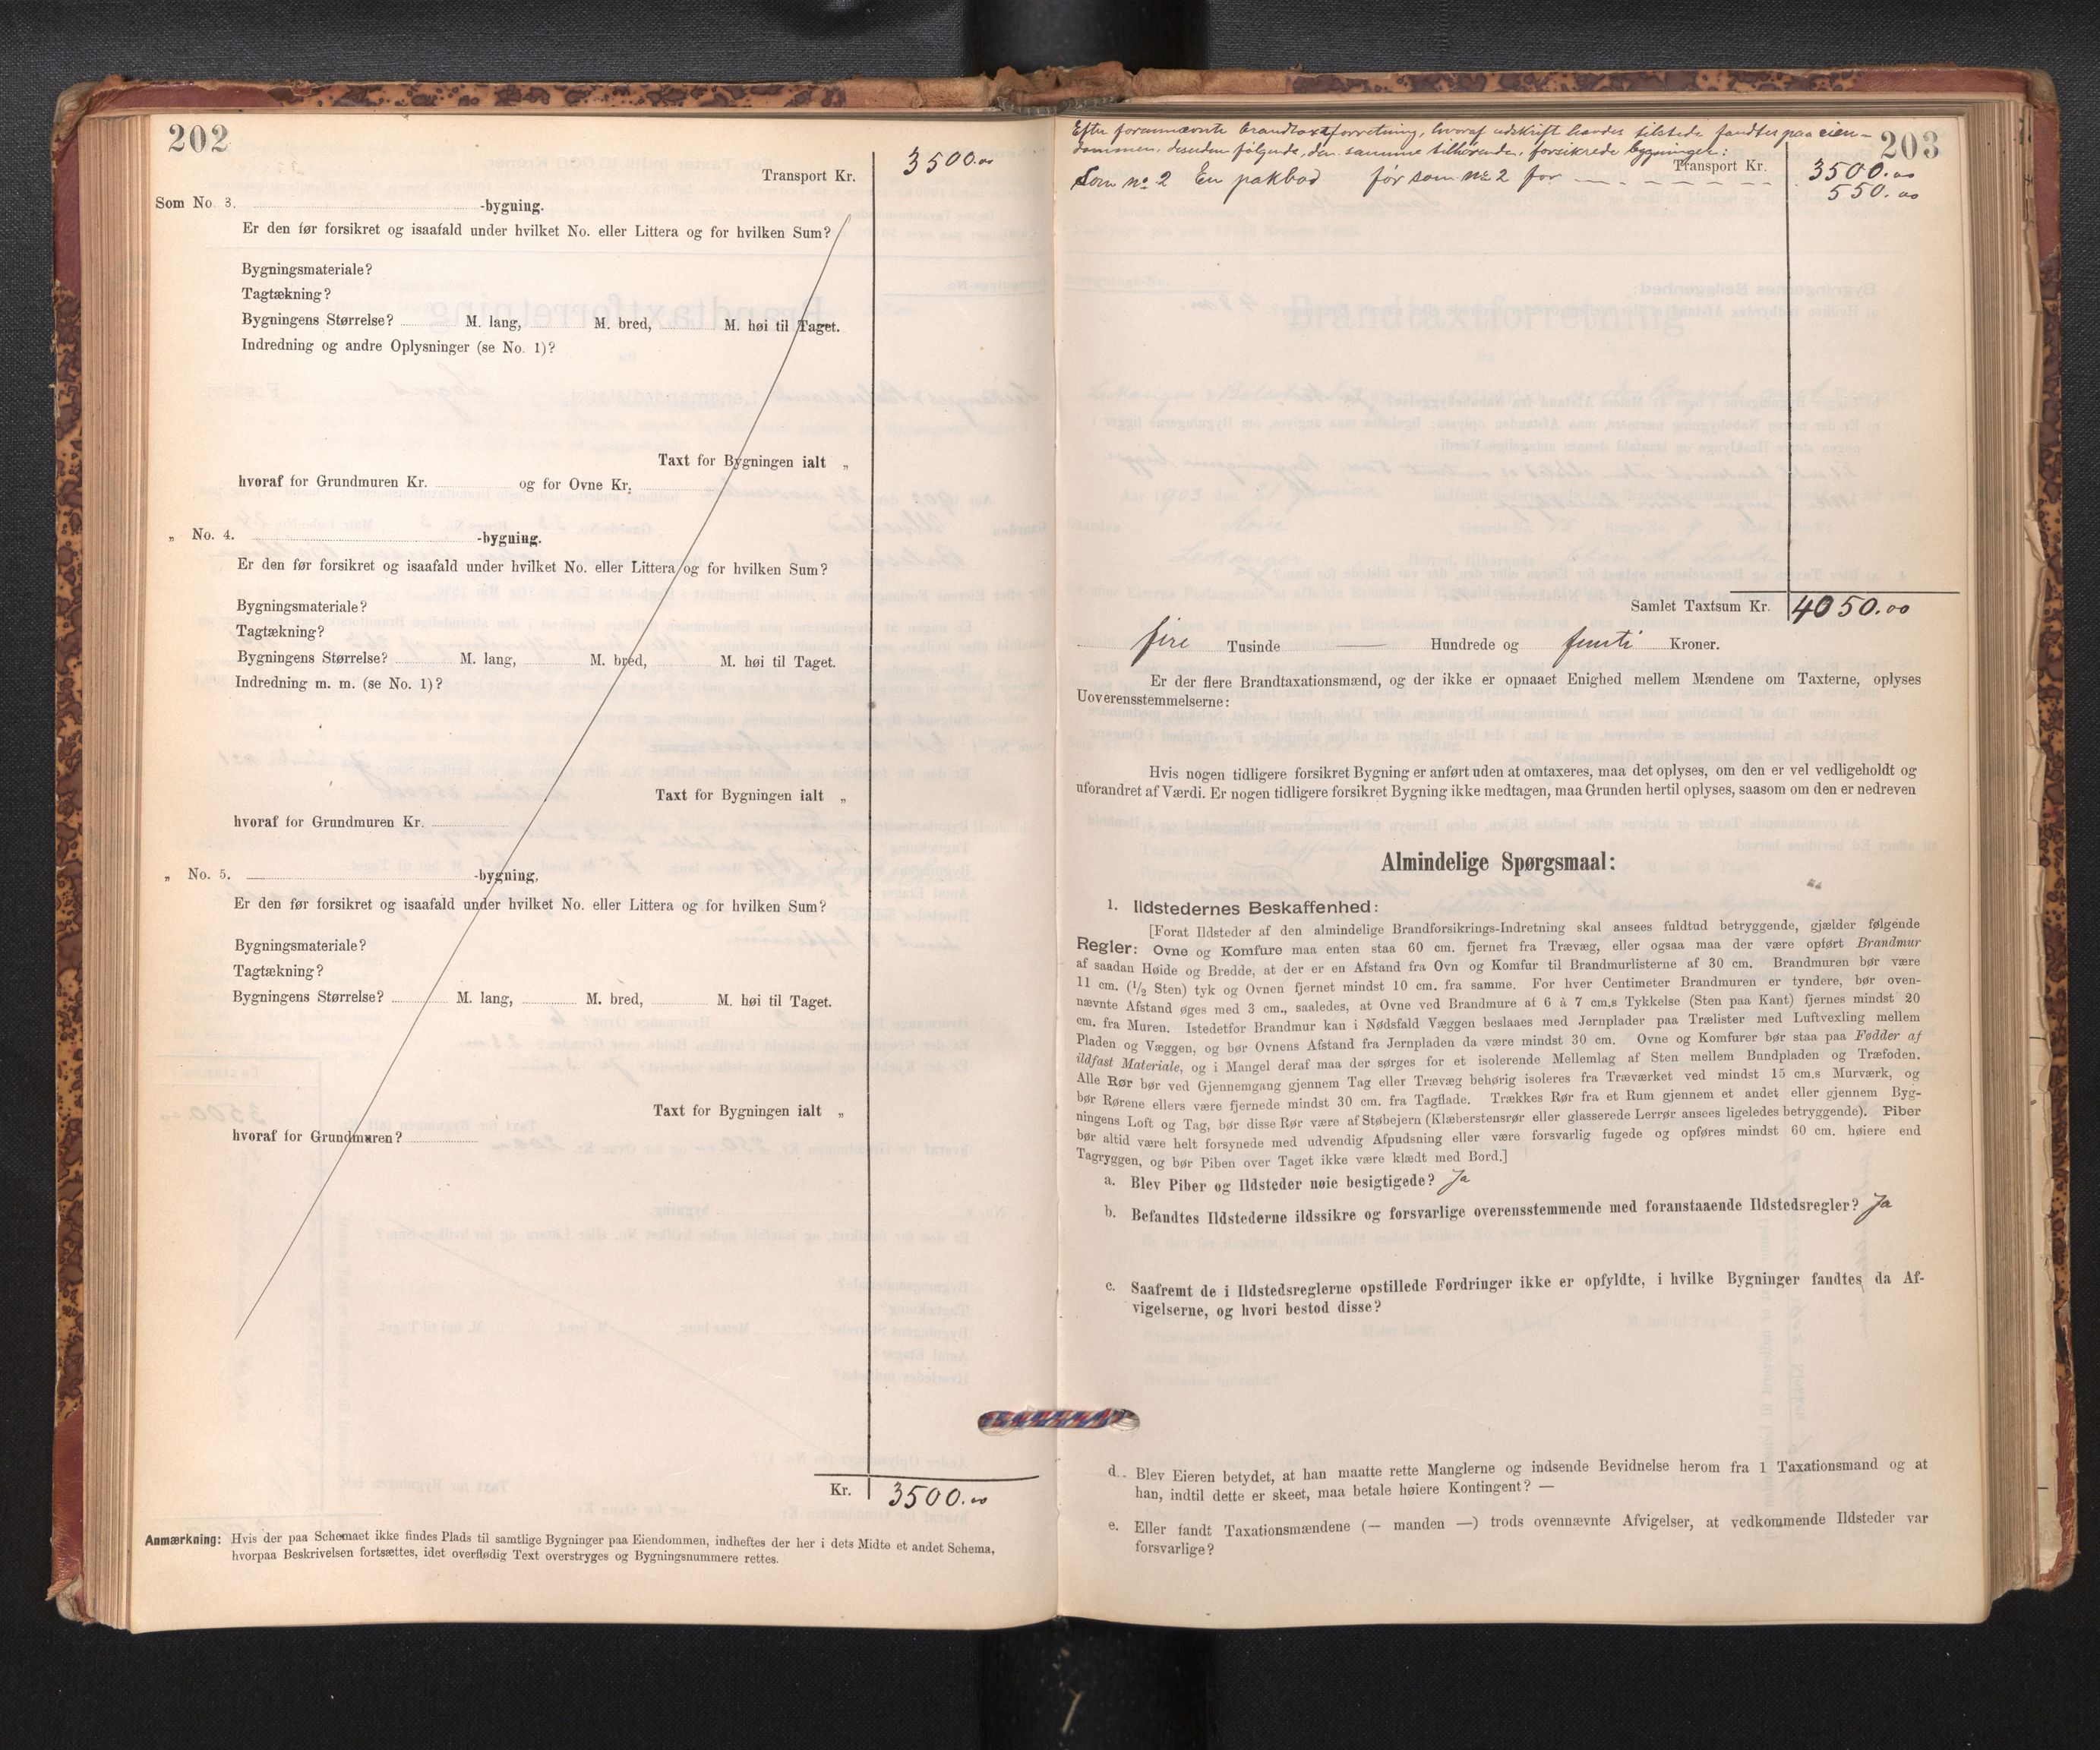 202
Transport Kr. 3500.00
Som No. 3. -bygning.
Er den før forsikret og isaafald under hvilket No. eller Littera og for hvilken Sum?
Bygningsmateriale?
Tagtækning?
Bygningens Størrelse? M. lang, M. bred, M. høi til Taget.
Indredning og andre Oplysninger (se No. 1)?
Taxt for Bygningen ialt „
hvoraf for Grundmuren Kr. og for Ovne Kr.
„ No. 4. -bygning.
Er den før forsikret og isaafald under hvilket No. eller Littera og for hvilken Sum?
Bygningsmateriale?
Tagtækning?
Bygningens Størrelse? M. lang, M. bred, M. høi til Taget.
Indredning m. m. (se No. 1)?
Taxt for Bygningen ialt „
hvoraf for Grundmuren Kr.
„ No. 5. -bygning,
Er den før forsikret og isaafald under hvilket No. eller Littera og for hvilken Sum?
Bygningsmateriale?
Tagtækning?
Bygningens Størrelse? M. lang, M. bred, M. høi til Taget.
Taxt for Bygningen ialt „
hvoraf for Grundmuren?
Kr. 3500.00
Anmærkning: Hvis der paa Schemaet ikke findes Plads til samtlige Bygninger paa Eiendommen, indheftes der her i dets Midte et andet Schema,
hvorpaa Beskrivelsen fortsættes, idet overflødig Text overstryges og Bygningsnummere rettes.
203
Efter forannævnte brandtaxtforretning, hvoraf udskrift havdes tilstede fandtes paa eien-
dommen, desuden følgende, den samme tilhørende, forsikrede bygninger:
Transport Kr. 3500.00
Som No 2 En pakbod før som No 2 for 550.00
Samlet Taxtsum Kr. 4050.00
fire Tusinde — Hundrede og femti Kroner.
Er der flere Brandtaxationsmænd, og der ikke er opnaaet Enighed mellem Mændene om Taxterne, oplyses
Uoverensstemmelserne:
Hvis nogen tidligere forsikret Bygning er anført uden at omtaxeres, maa det oplyses, om den er vel vedligeholdt og
uforandret af Værdi. Er nogen tidligere forsikret Bygning ikke medtagen, maa Grunden hertil oplyses, saasom om den er nedreven
Almindelige Spørgsmaal:
1. Ildstedernes Beskaffenhed:
[Forat Ildsteder af den almindelige Brandforsikrings-Indretning skal ansees fuldtud betryggende, gjælder følgende
Regler: Ovne og Komfure maa enten staa 60 cm. fjernet fra Trævæg, eller ogsaa maa der være opført Brandmur
af saadan Høide og Bredde, at der er en Afstand fra Ovn og Komfur til Brandmurlisterne af 30 cm. Brandmuren bør være
11 cm. (1/2 Sten) tyk og Ovnen fjernet mindst 10 cm. fra samme. For hver Centimeter Brandmuren er tyndere, bør oven-
nævnte Afstand øges med 3 cm., saaledes, at Ovne ved Brandmure af 6 à 7 cm.s Tykkelse (Sten paa Kant) fjernes mindst 20
cm. fra Muren. Istedetfor Brandmur kan i Nødsfald Væggen beslaaes med Jernplader paa Trælister med Luftvexling mellem
Pladen og Væggen, og bør Ovnens Afstand fra Jernpladen da være mindst 30 cm. Ovne og Komfurer bør staa paa Fødder af
ildfast Materiale, og i Mangel deraf maa der sørges for et isolerende Mellemlag af Sten mellem Bundpladen og Træfoden.
Alle Rør bør ved Gjennemgang gjennem Tag eller Trævæg behørig isoleres fra Træværket ved mindst 15 cm.s Murværk, og
bør Rørene ellers være fjernede mindst 30 cm. fra Tagflade. Trækkes Rør fra et Rum gjennem et andet eller gjennem Byg-
ningens Loft og Tag, bør disse Rør være af Støbejern (Klæberstensrør eller glasserede Lerrør ansees ligeledes betryggende). Piber
bør altid være helt forsynede med udvendig Afpudsning eller være forsvarlig fugede og opføres mindst 60 cm. høiere end
Tagryggen, og bør Piben over Taget ikke være klædt med Bord.]
a. Blev Piber og Ildsteder nøie besigtigede? Ja
b. Befandtes Ildstederne ildssikre og forsvarlige overensstemmende med foranstaaende Ildstedsregler? Ja
c. Saafremt de i Ildstedsreglerne opstillede Fordringer ikke er opfyldte, i hvilke Bygninger fandtes da Af-
vigelserne, og hvori bestod disse?
d. Blev Eieren betydet, at han maatte rette Manglerne og indsende Bevidnelse herom fra 1 Taxationsmand og at
han, indtil dette er skeet, maa betale høiere Kontingent? —
e. Eller fandt Taxationsmændene (— manden —) trods ovennævnte Afvigelser, at vedkommende Ildsteder var
forsvarlige?